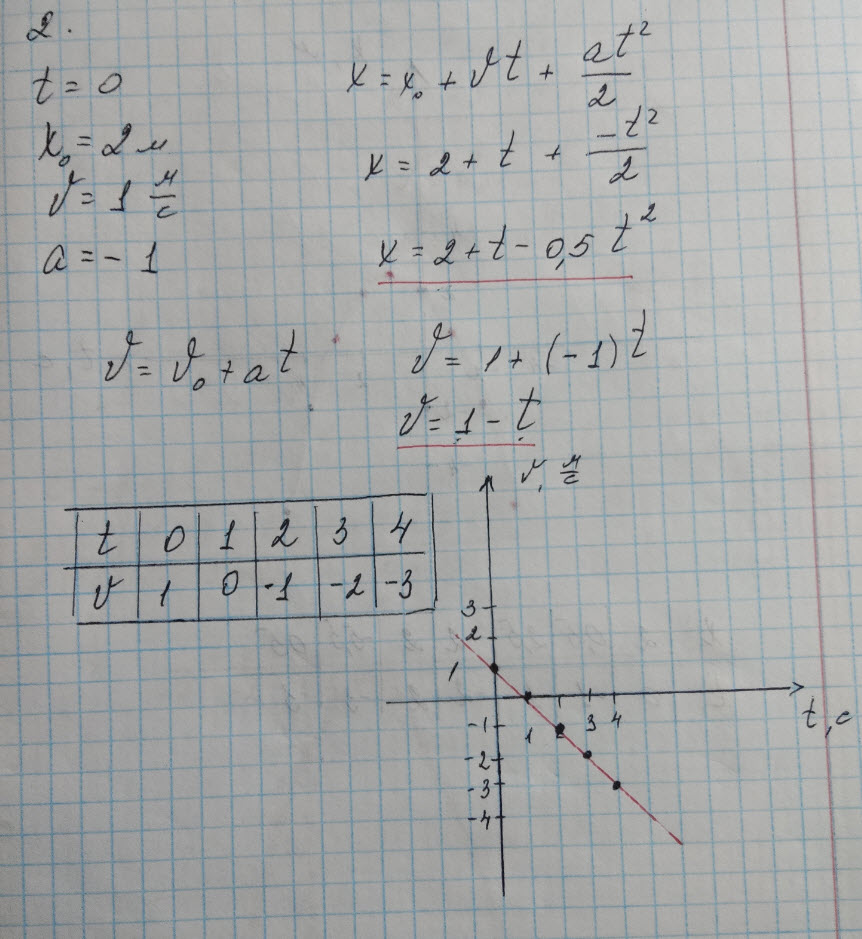 2.
t = 0
x₀ = 2 м
v = 1 м/с
a = - 1
x = x₀ + vt + at²/2
x = 2 + t + -t²/2
x = 2 + t - 0,5 t²
v = v₀ + at
v = 1 + (-1)t
v = 1 - t
t 0 1 2 3 4
v 1 0 -1 -2 -3
v, м/с
3
2
1
-1
-2
-3
-4
1 2 3 4
t, с